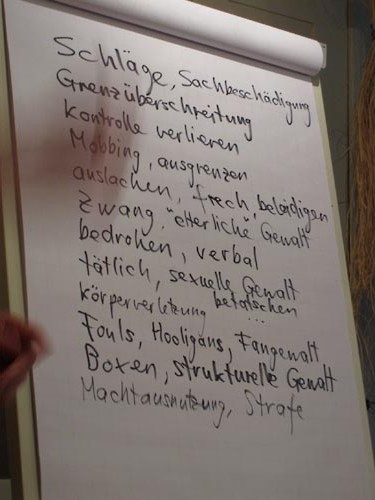 Schläge, Sachbeschädigung
Grenzüberschreitung
kontrolle verlieren
Mobbing, ausgrenzen
auslachen, frech, beleidigen
Zwang, "elterliche" Gewalt
bedrohen, verbal
tätlich, sexuelle Gewalt
körperverletzung betatschen
...
Fouls, Hooligans, Fangewalt
Boxen, strukturelle Gewalt
Machtausnutzung, Strafe